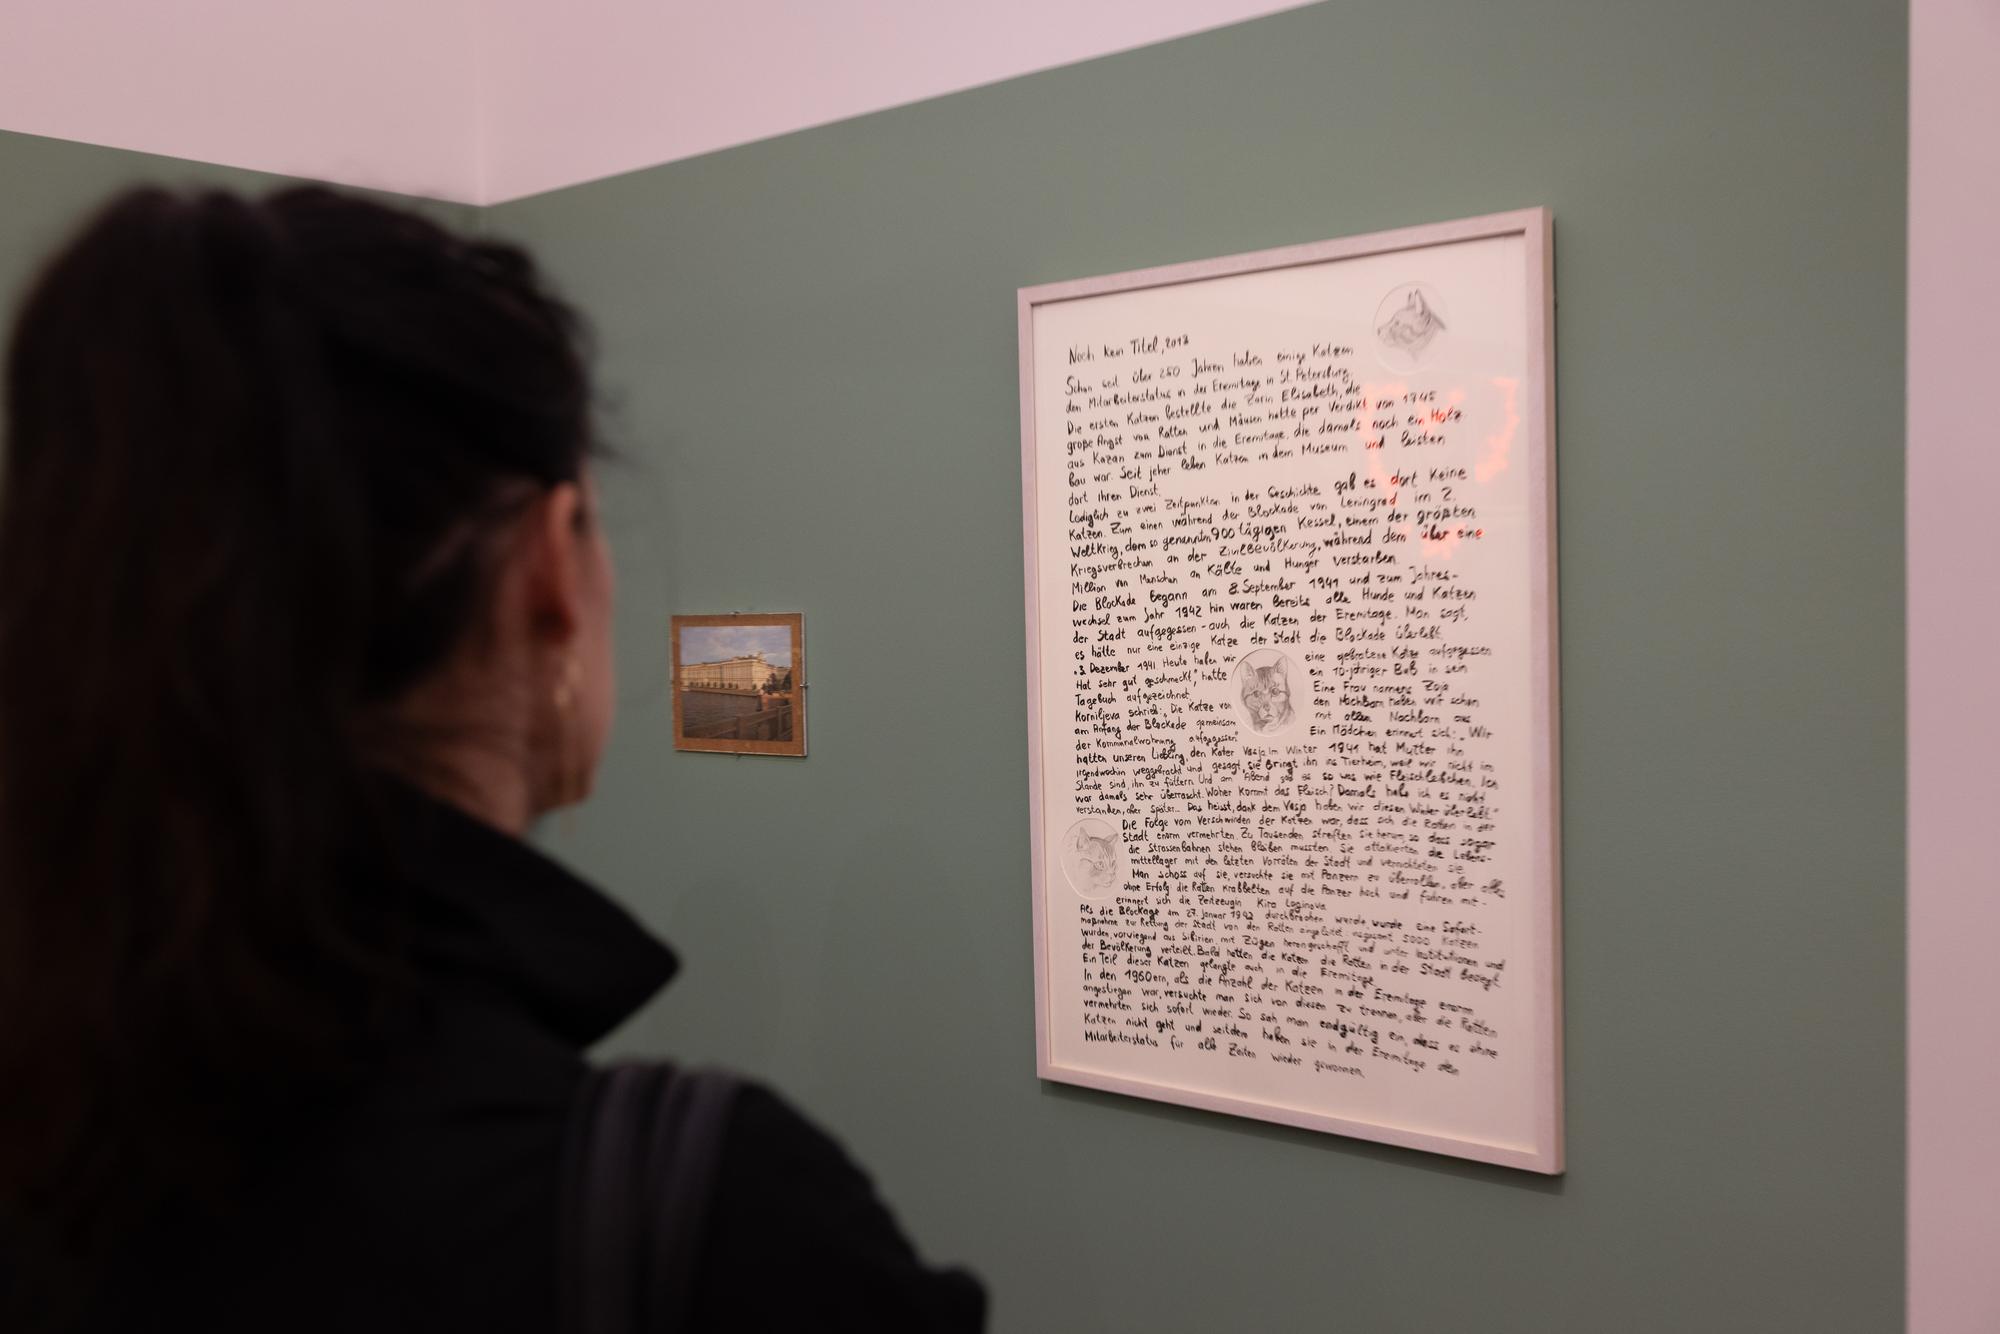 Noch kein Titel, 2013
Schon seit über 250 Jahren haben einige Katzen
den Mitarbeiterstatus in der Eremitage in St. Petersburg.
Die ersten Katzen bestellte die Zarin Elisabeth, die
große Angst von Ratten und Mäusen hatte per Verdikt von 1745
aus Kazan zum Dienst in die Eremitage, die damals noch ein Holz-
bau war. Seit jeher leben Katzen in dem Museum und leisten
dort ihren Dienst.
Lediglich zu zwei Zeitpunkten in der Geschichte gab es dort keine
Katzen. Zum einen während der Blockade von Leningrad im 2.
Weltkrieg, dem so genannten 900 tägigen Kessel, einem der größten
Kriegsverbrechen an der Zivilbevölkerung, während dem über eine
Million von Menschen an Kälte und Hunger verstarben.
Die Blockade begann am 8. September 1941 und zum Jahres-
wechsel zum Jahr 1942 hin waren bereits alle Hunde und Katzen
der Stadt aufgegessen - auch die Katzen der Eremitage. Man sagt,
es hätte nur eine einzige Katze der Stadt die Blockade überlebt.
"3 Dezember 1941. Heute haben wir eine gebratene Katze aufgegessen
Hat sehr gut geschmeckt", hatte ein 10-jähriger Bub in sein
Tagebuch aufgezeichnet. Eine Frau namens Zoja
Korniljeva schrieb: "Die Katze von den Nachbarn haben wir schon
am Anfang der Blockade gemeinsam mit allen Nachbarn aus
der Kommunalwohnung aufgegessen" Ein Mädchen erinnert sich: "Wir
hatten unseren Liebling, den Kater Vasja. Im Winter 1941 hat Mutter ihn
irgendwohin weggebracht und gesagt, sie bringt ihn ins Tierheim, weil wir nicht im
Stande sind, ihn zu füttern. Und am Abend gab es so was wie Fleischleibchen. Ich
war damals sehr überrascht. Woher kommt das Fleisch? Damals habe ich es nicht
verstanden, aber später... Das heisst, dank dem Vasja haben wir diesen Winter überlebt."
Die Folge vom Verschwinden der Katzen war, dass sich die Ratten in der
Stadt enorm vermehrten. Zu Tausenden streiften sie herum, so dass sogar
die Strassenbahnen stehen bleiben mussten. Sie attakierten die Lebens-
mittellager mit den letzten Vorräten der Stadt und vernichteten sie.
Man schoss auf sie, versuchte sie mit Panzern zu überrollen, aber alles
ohne Erfolg: die Ratten krabbelten auf die Panzer hoch und fuhren mit -
erinnert sich die Zeitzeugin Kira Loginova.
Als die Blockade am 27. Januar durchbrochen wurde, wurde eine Sofort-
maßnahme zur Rettung der Stadt von den Ratten eingeleitet: insgesamt 5000 Katzen
wurden, vorwiegend aus Sibirien, mit Zügen herangeschafft und unter Institutionen und
der Bevölkerung verteilt. Bald hatten die Katzen die Ratten in der Stadt besiegt.
Ein Teil dieser Katzen gelangte auch in die Eremitage.
In den 1960ern, als die Anzahl der Katzen in der Eremitage enorm
angestiegen war, versuchte man sich von diesen zu trennen, aber die Ratten
vermehrten sich sofort wieder. So sah man endgültig ein, dass es ohne
Katzen nicht geht und seitdem haben sie in der Eremitage den
Mitarbeiterstatus für alle Zeiten wieder gewonnen.